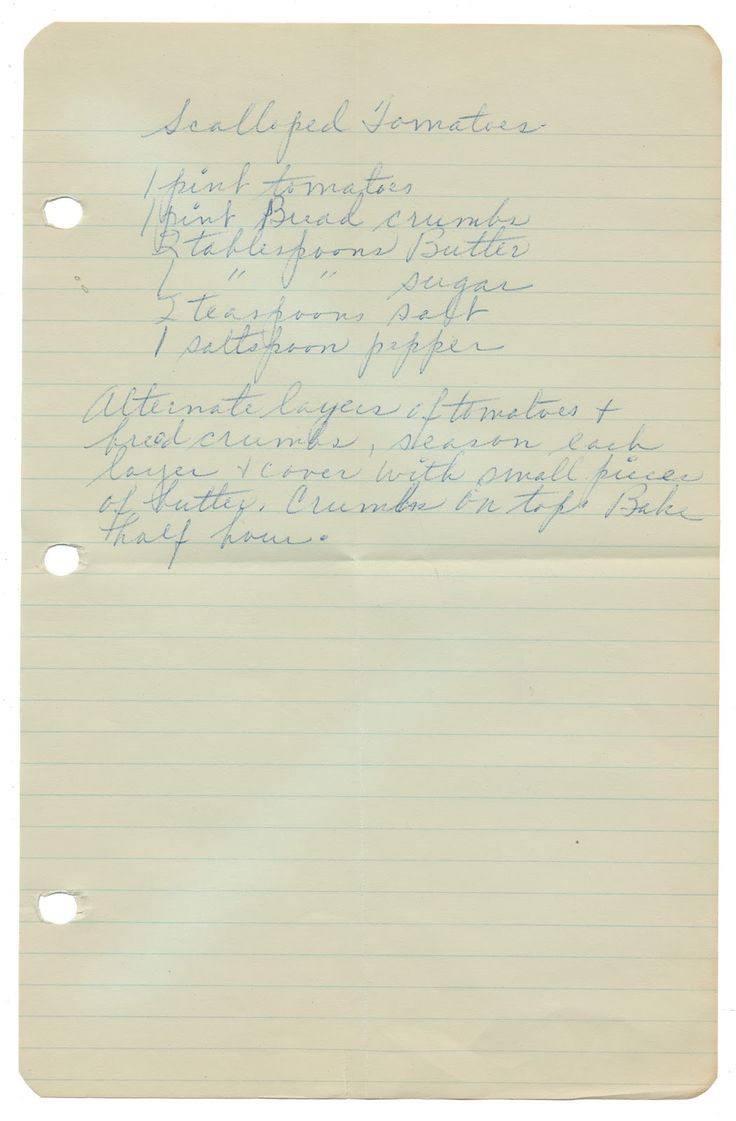 Scalloped Tomatoes
1 pint tomatoes
1 pint Bread crumbs
3 tablespoons Butter
1 " " sugar
2 teaspoons salt
1 saltspoon pepper
Alternate layers of tomatoes +
bread crumbs, season each
layer + cover with small pieces
of butter. Crumbs on top. Bake
half hour.